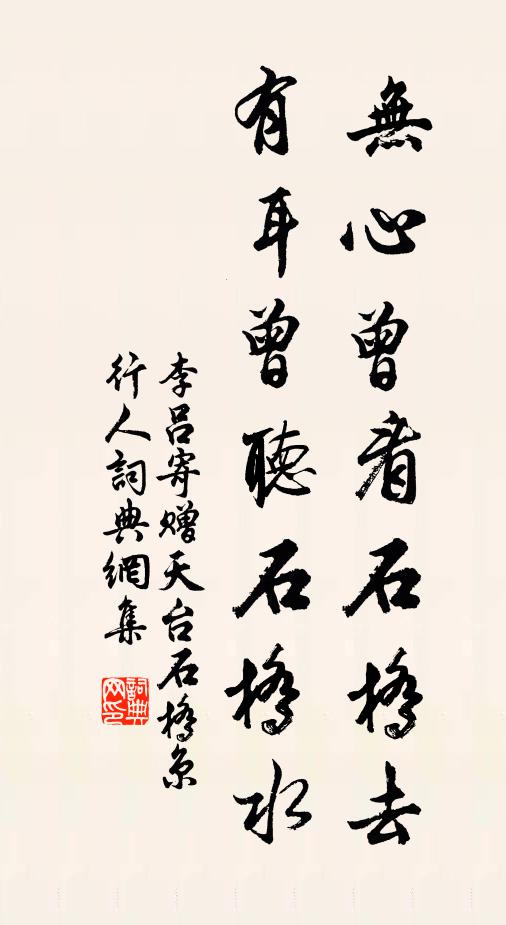 無心曾看石橋去
有耳曾聽石橋水
李呂寄贈天台石橋京
行人詞典網集
詞典
网印